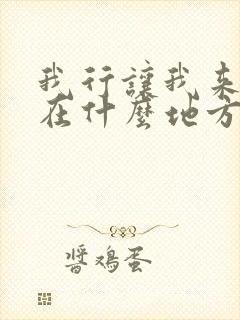 我行讓我来
在什麼地方
醬鸡蛋